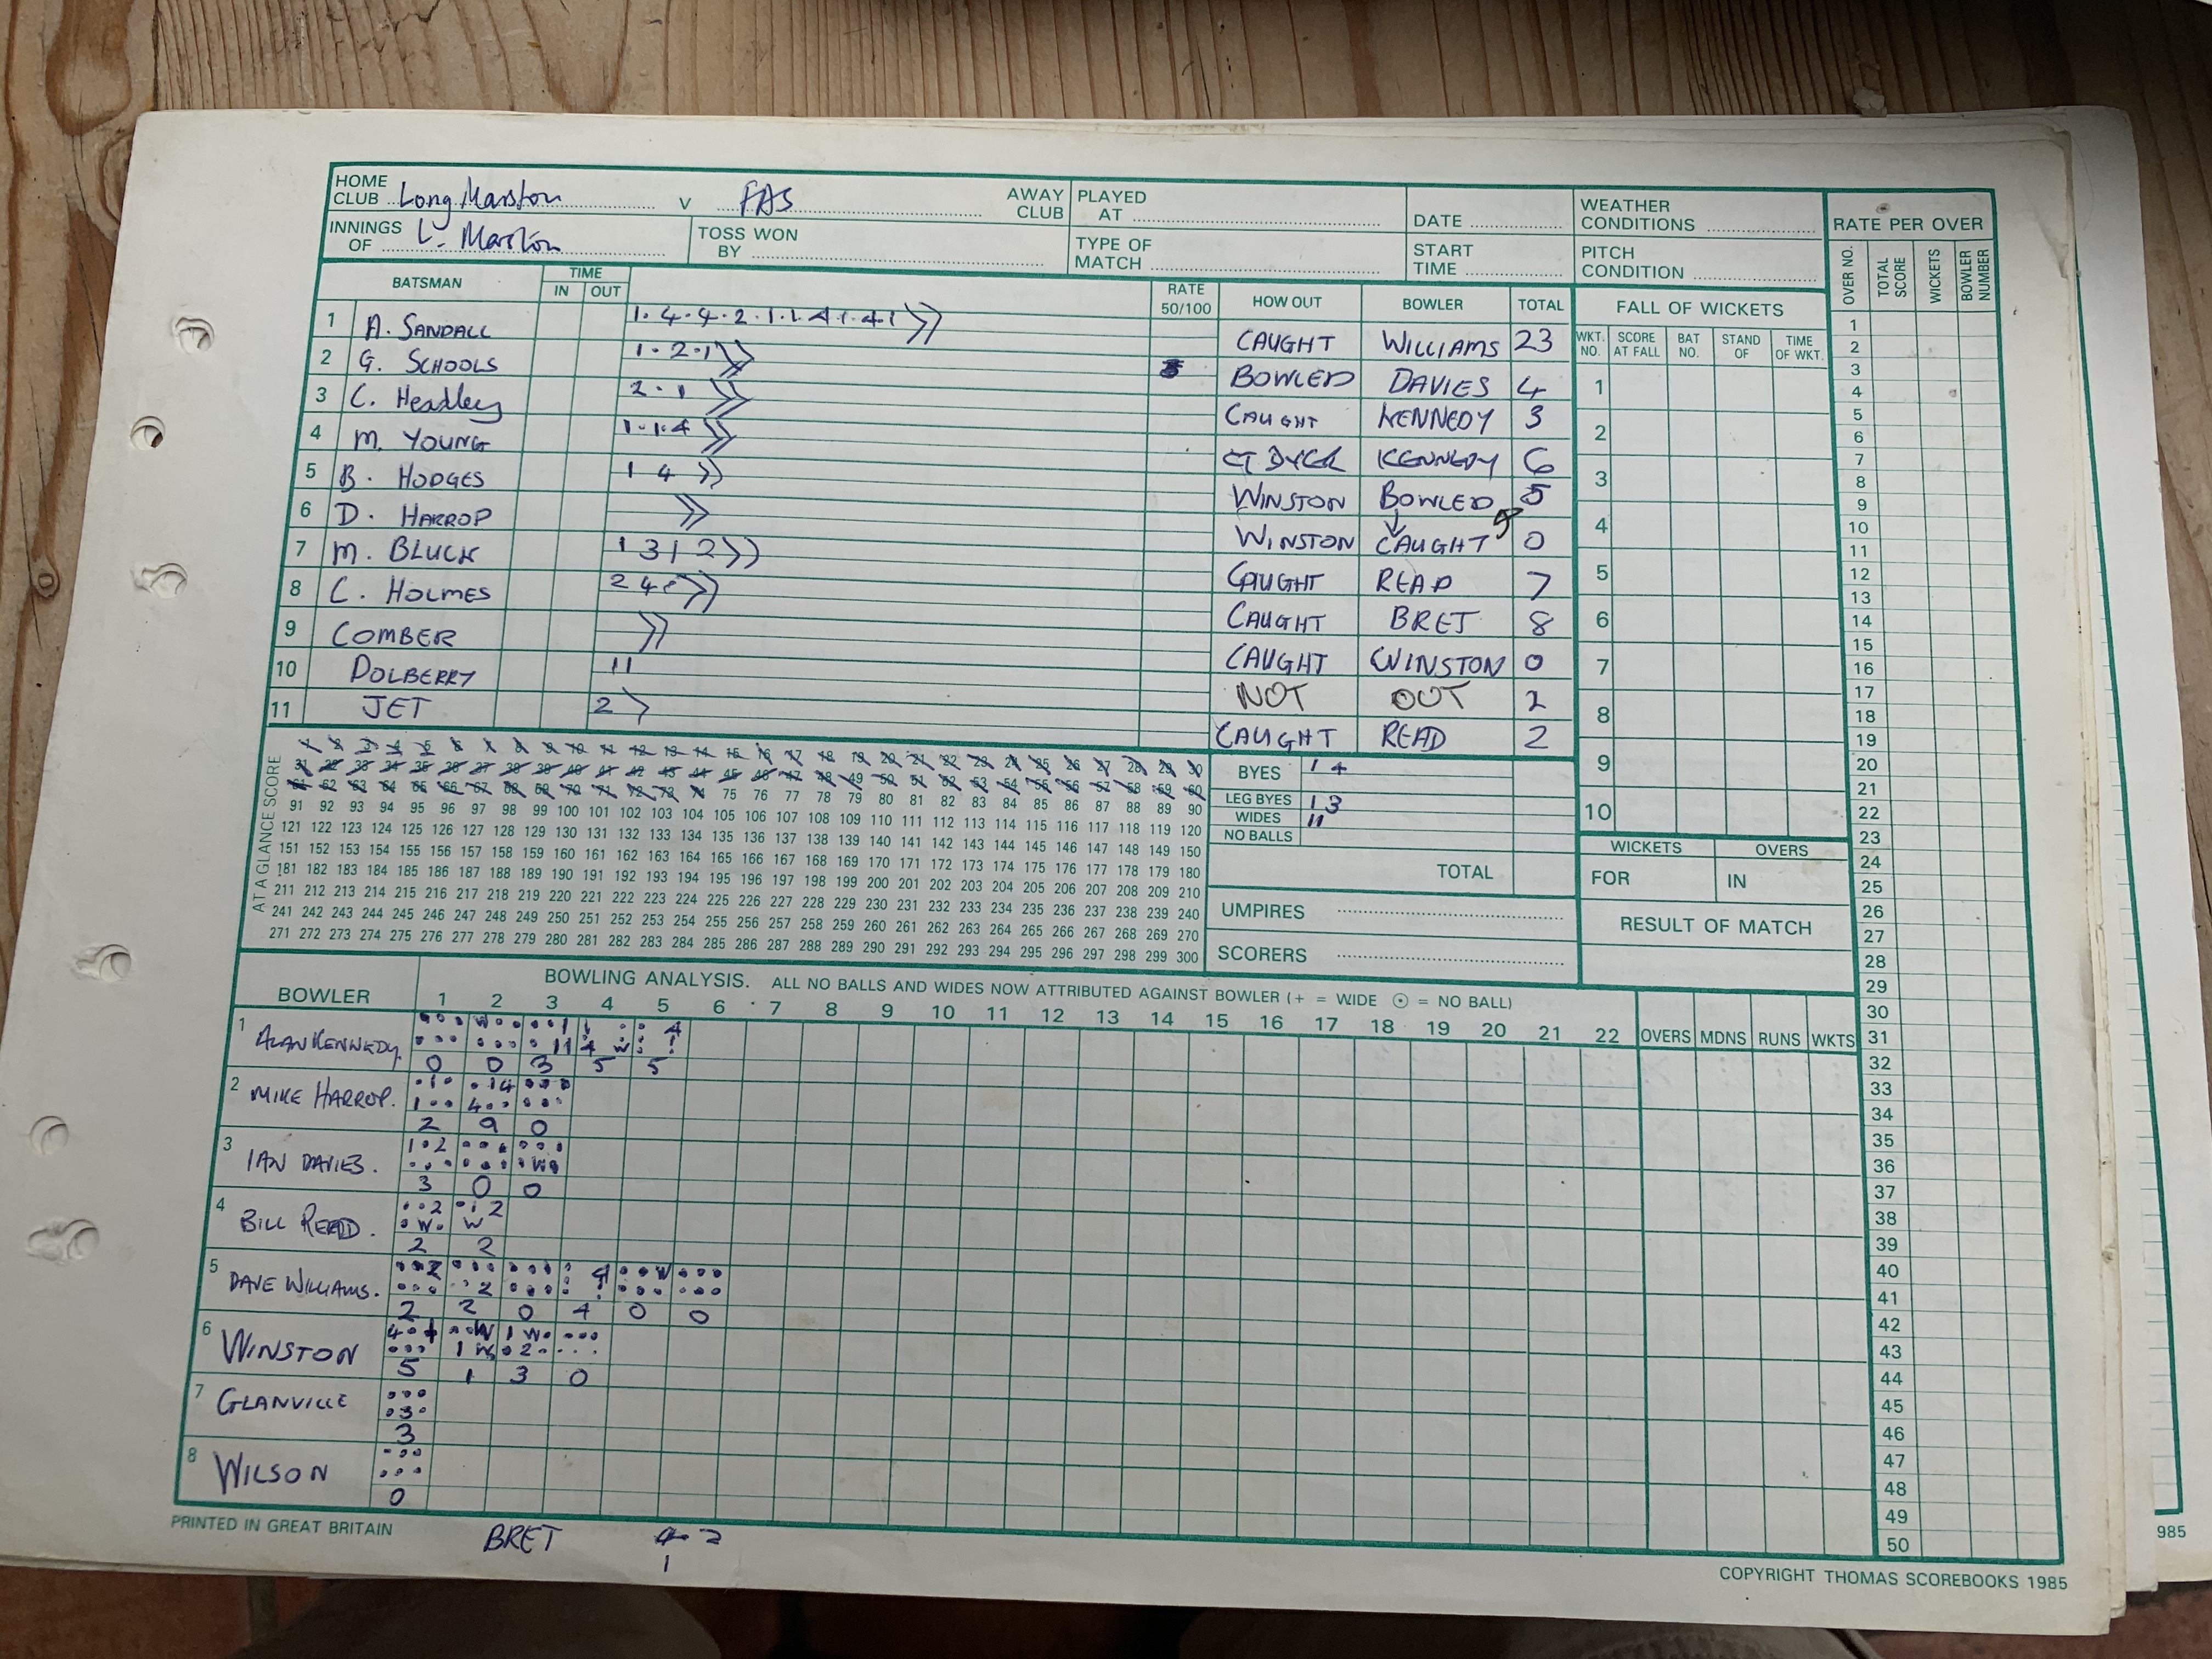 HOME CLUB Long Marston V FAS AWAY CLUB PLAYED AT DATE WEATHER CONDITIONS RATE PER OVER
INNINGS OF L. Marston TOSS WON BY TYPE OF MATCH START TIME PITCH CONDITION
OVER NO. TOTAL SCORE WICKETS BOWLER NUMBER
BATSMAN TIME IN OUT RATE 50/100 HOW OUT BOWLER TOTAL FALL OF WICKETS
WKT. NO. SCORE AT FALL BAT NO. STAND OF TIME OF WKT.
1 A. SANDALL 1.4.4.2.1.1.4.1.4.1 CAUGHT WILLIAMS 23
2 G. SCHOOLS 1.2.1 BOWLED DAVIES 4
3 C. Headley 2.1 CAUGHT KENNEDY 3
4 M. YOUNG 1.1.4 CT DYER KENNEDY 6
5 B. HODGES 1 4 WINSTON BOWLED 5
6 D. HARROP WINSTON CAUGHT 0
7 M. BLUCK 1 3 1 2 CAUGHT READ 7
8 C. HOLMES 2 4 CAUGHT BRET 8
9 COMBER CAUGHT WINSTON 0
10 DOLBERRY 1 1 NOT OUT 2
11 JET 2 CAUGHT READ 2
1 2 3 4 5 6 7 8 9 10
AT A GLANCE SCORE
1 2 3 4 5 6 7 8 9 10 11 12 13 14 15 16 17 18 19 20 21 22 23 24 25 26 27 28 29 30
31 32 33 34 35 36 37 38 39 40 41 42 43 44 45 46 47 48 49 50 51 52 53 54 55 56 57 58 59 60
61 62 63 64 65 66 67 68 69 70 71 72 73 74 75 76 77 78 79 80 81 82 83 84 85 86 87 88 89 90
91 92 93 94 95 96 97 98 99 100 101 102 103 104 105 106 107 108 109 110 111 112 113 114 115 116 117 118 119 120
121 122 123 124 125 126 127 128 129 130 131 132 133 134 135 136 137 138 139 140 141 142 143 144 145 146 147 148 149 150
151 152 153 154 155 156 157 158 159 160 161 162 163 164 165 166 167 168 169 170 171 172 173 174 175 176 177 178 179 180
181 182 183 184 185 186 187 188 189 190 191 192 193 194 195 196 197 198 199 200 201 202 203 204 205 206 207 208 209 210
211 212 213 214 215 216 217 218 219 220 221 222 223 224 225 226 227 228 229 230 231 232 233 234 235 236 237 238 239 240
241 242 243 244 245 246 247 248 249 250 251 252 253 254 255 256 257 258 259 260 261 262 263 264 265 266 267 268 269 270
271 272 273 274 275 276 277 278 279 280 281 282 283 284 285 286 287 288 289 290 291 292 293 294 295 296 297 298 299 300
BYES 1 4
LEG BYES 1 3
WIDES 11
NO BALLS
TOTAL
UMPIRES
SCORERS
WICKETS OVERS
FOR IN
RESULT OF MATCH
BOWLER BOWLING ANALYSIS. ALL NO BALLS AND WIDES NOW ATTRIBUTED AGAINST BOWLER (+ = WIDE ⊙ = NO BALL)
1 2 3 4 5 6 7 8 9 10 11 12 13 14 15 16 17 18 19 20 21 22 OVERS MDNS RUNS WKTS
1 ALAN KENNEDY. 0 0 3 5 5
2 MIKE HARROP. 2 9 0
3 IAN DAVIES. 3 0 0
4 BILL READ. 2 2
5 DAVE WILLIAMS. 2 2 0 4 0 0
6 WINSTON 5 1 3 0
7 GLANVILLE 3
8 WILSON 0
1 2 3 4 5 6 7 8 9 10 11 12 13 14 15 16 17 18 19 20 21 22 23 24 25 26 27 28 29 30 31 32 33 34 35 36 37 38 39 40 41 42 43 44 45 46 47 48 49 50
PRINTED IN GREAT BRITAIN
BRET
1
COPYRIGHT THOMAS SCOREBOOKS 1985
985